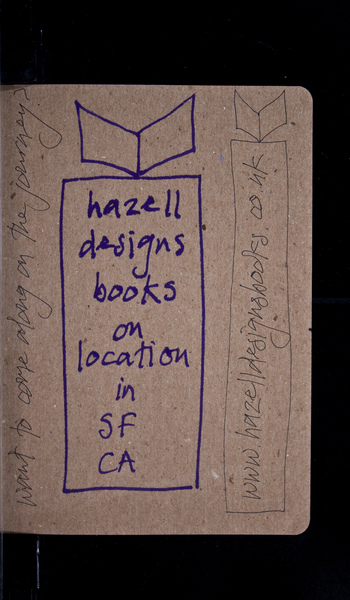 want to come along on the journey?
hazell
designs
books
on
location
in
SF
CA
www.hazelldesignsbooks.co.uk